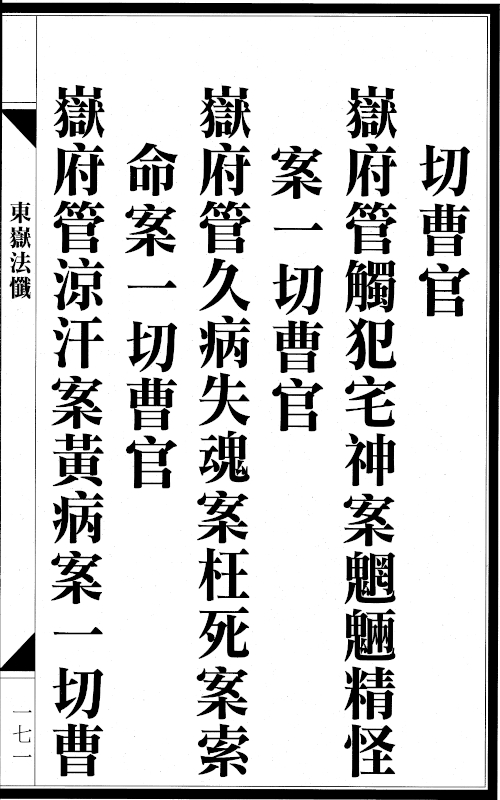 切曹官
嶽府管觸犯宅神案魍魎精怪
案一切曹官
嶽府管久病失魂案枉死案索
命案一切曹官
嶽府管涼汗案黃病案一切曹
東嶽法懺
一七一